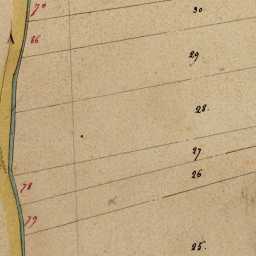 70
30
66
29
28.
27
26
78
79
25.